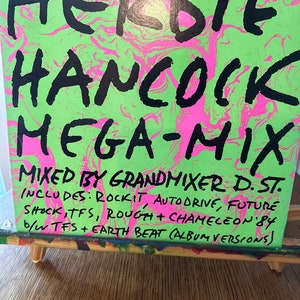 HERBIE
HANCOCK
MEGA-MIX
MIXED BY GRANDMIXER D. ST.
INCLUDES: ROCKIT, AUTODRIVE, FUTURE
SHOCK, TFS, ROUGH + CHAMELEON '84
b/w TFS + EARTH BEAT (ALBUM VERSIONS)